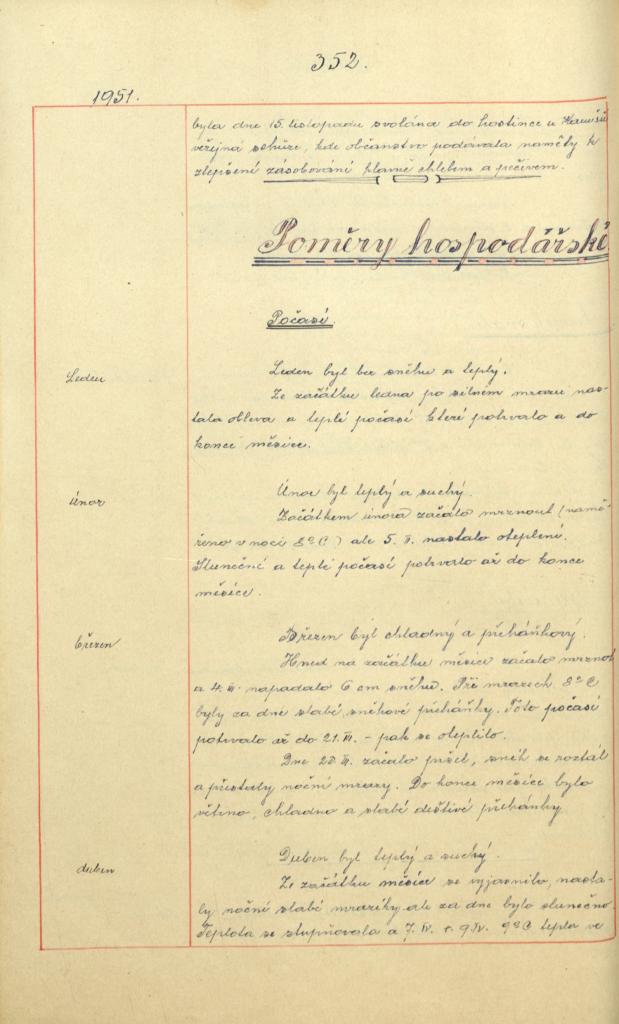 352.
1951.
byla dne 15. listopadu svolána do hostince u
veřejná schůze, kde občanstvo podávala náměty k
zlepšení zásobování hlavně chlebem a pečivem.
Poměry hospodářské
Počasí.
Leden
Leden byl bez sněhu a teplý.
Ze začátku ledna po silném mrazu nas-
tala obleva a teplé počasí které potrvalo a do
konce měsíce.
únor
Únor byl teplý a suchý.
Začátkem února začalo mrznout (namě-
řeno v noci 8°C) ale 5. II. nastalo oteplení.
Slunečné a teplé počasí potrvalo až do konce
měsíce.
březen
Březen byl chladný a přeháňkový.
Hned na začátku měsíce začalo mrznout
a 4. III. napadalo 6 cm sněhu. Při mrazech 8°C
byly za dne slabé sněhové přeháňky. Toto počasí
potrvalo až do 21. III. - pak se oteplilo.
Dne III. začalo pršet, sníh se roztál
a přestaly noční mrazy. Do konce měsíce bylo
větrno, chladno a slabé deštivé přeháňky
duben
Duben byl teplý a suchý.
Ze začátku měsíce se vyjasnilo, nasta-
ly noční slabé mrazíky ale za dne bylo slunečno.
Teplota se stupňovala a 7. IV. 9. IV. tepla ve